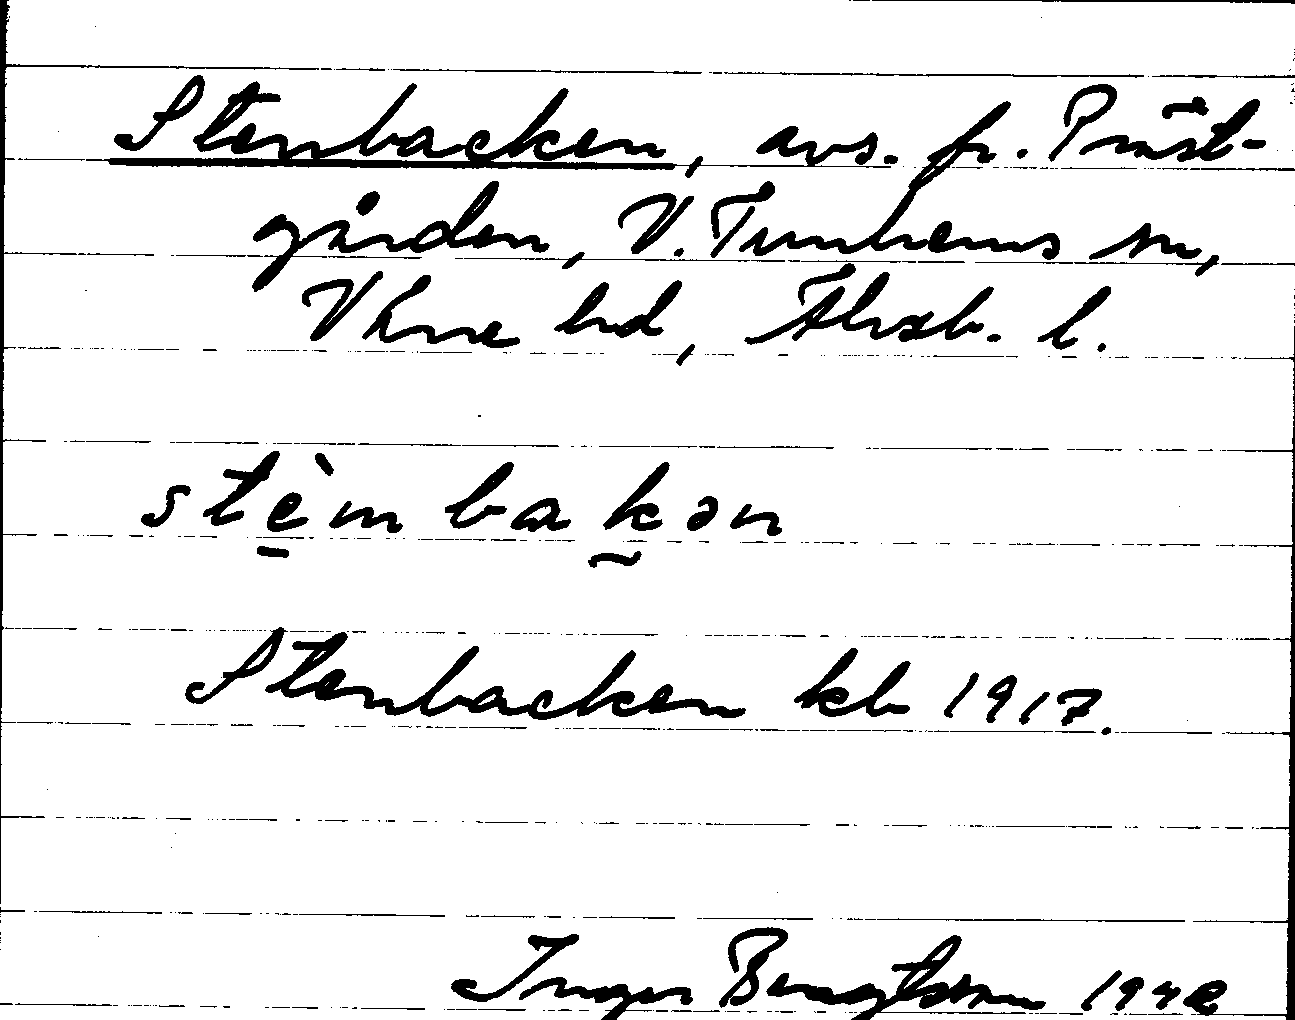 Stenbacken, avs. fr. Präst-
gården, V. Tunhems sn,
Väne hd, Älvsb. l.
stèm bakən
Stenbacken kb 1917.
Inger Bengtsson